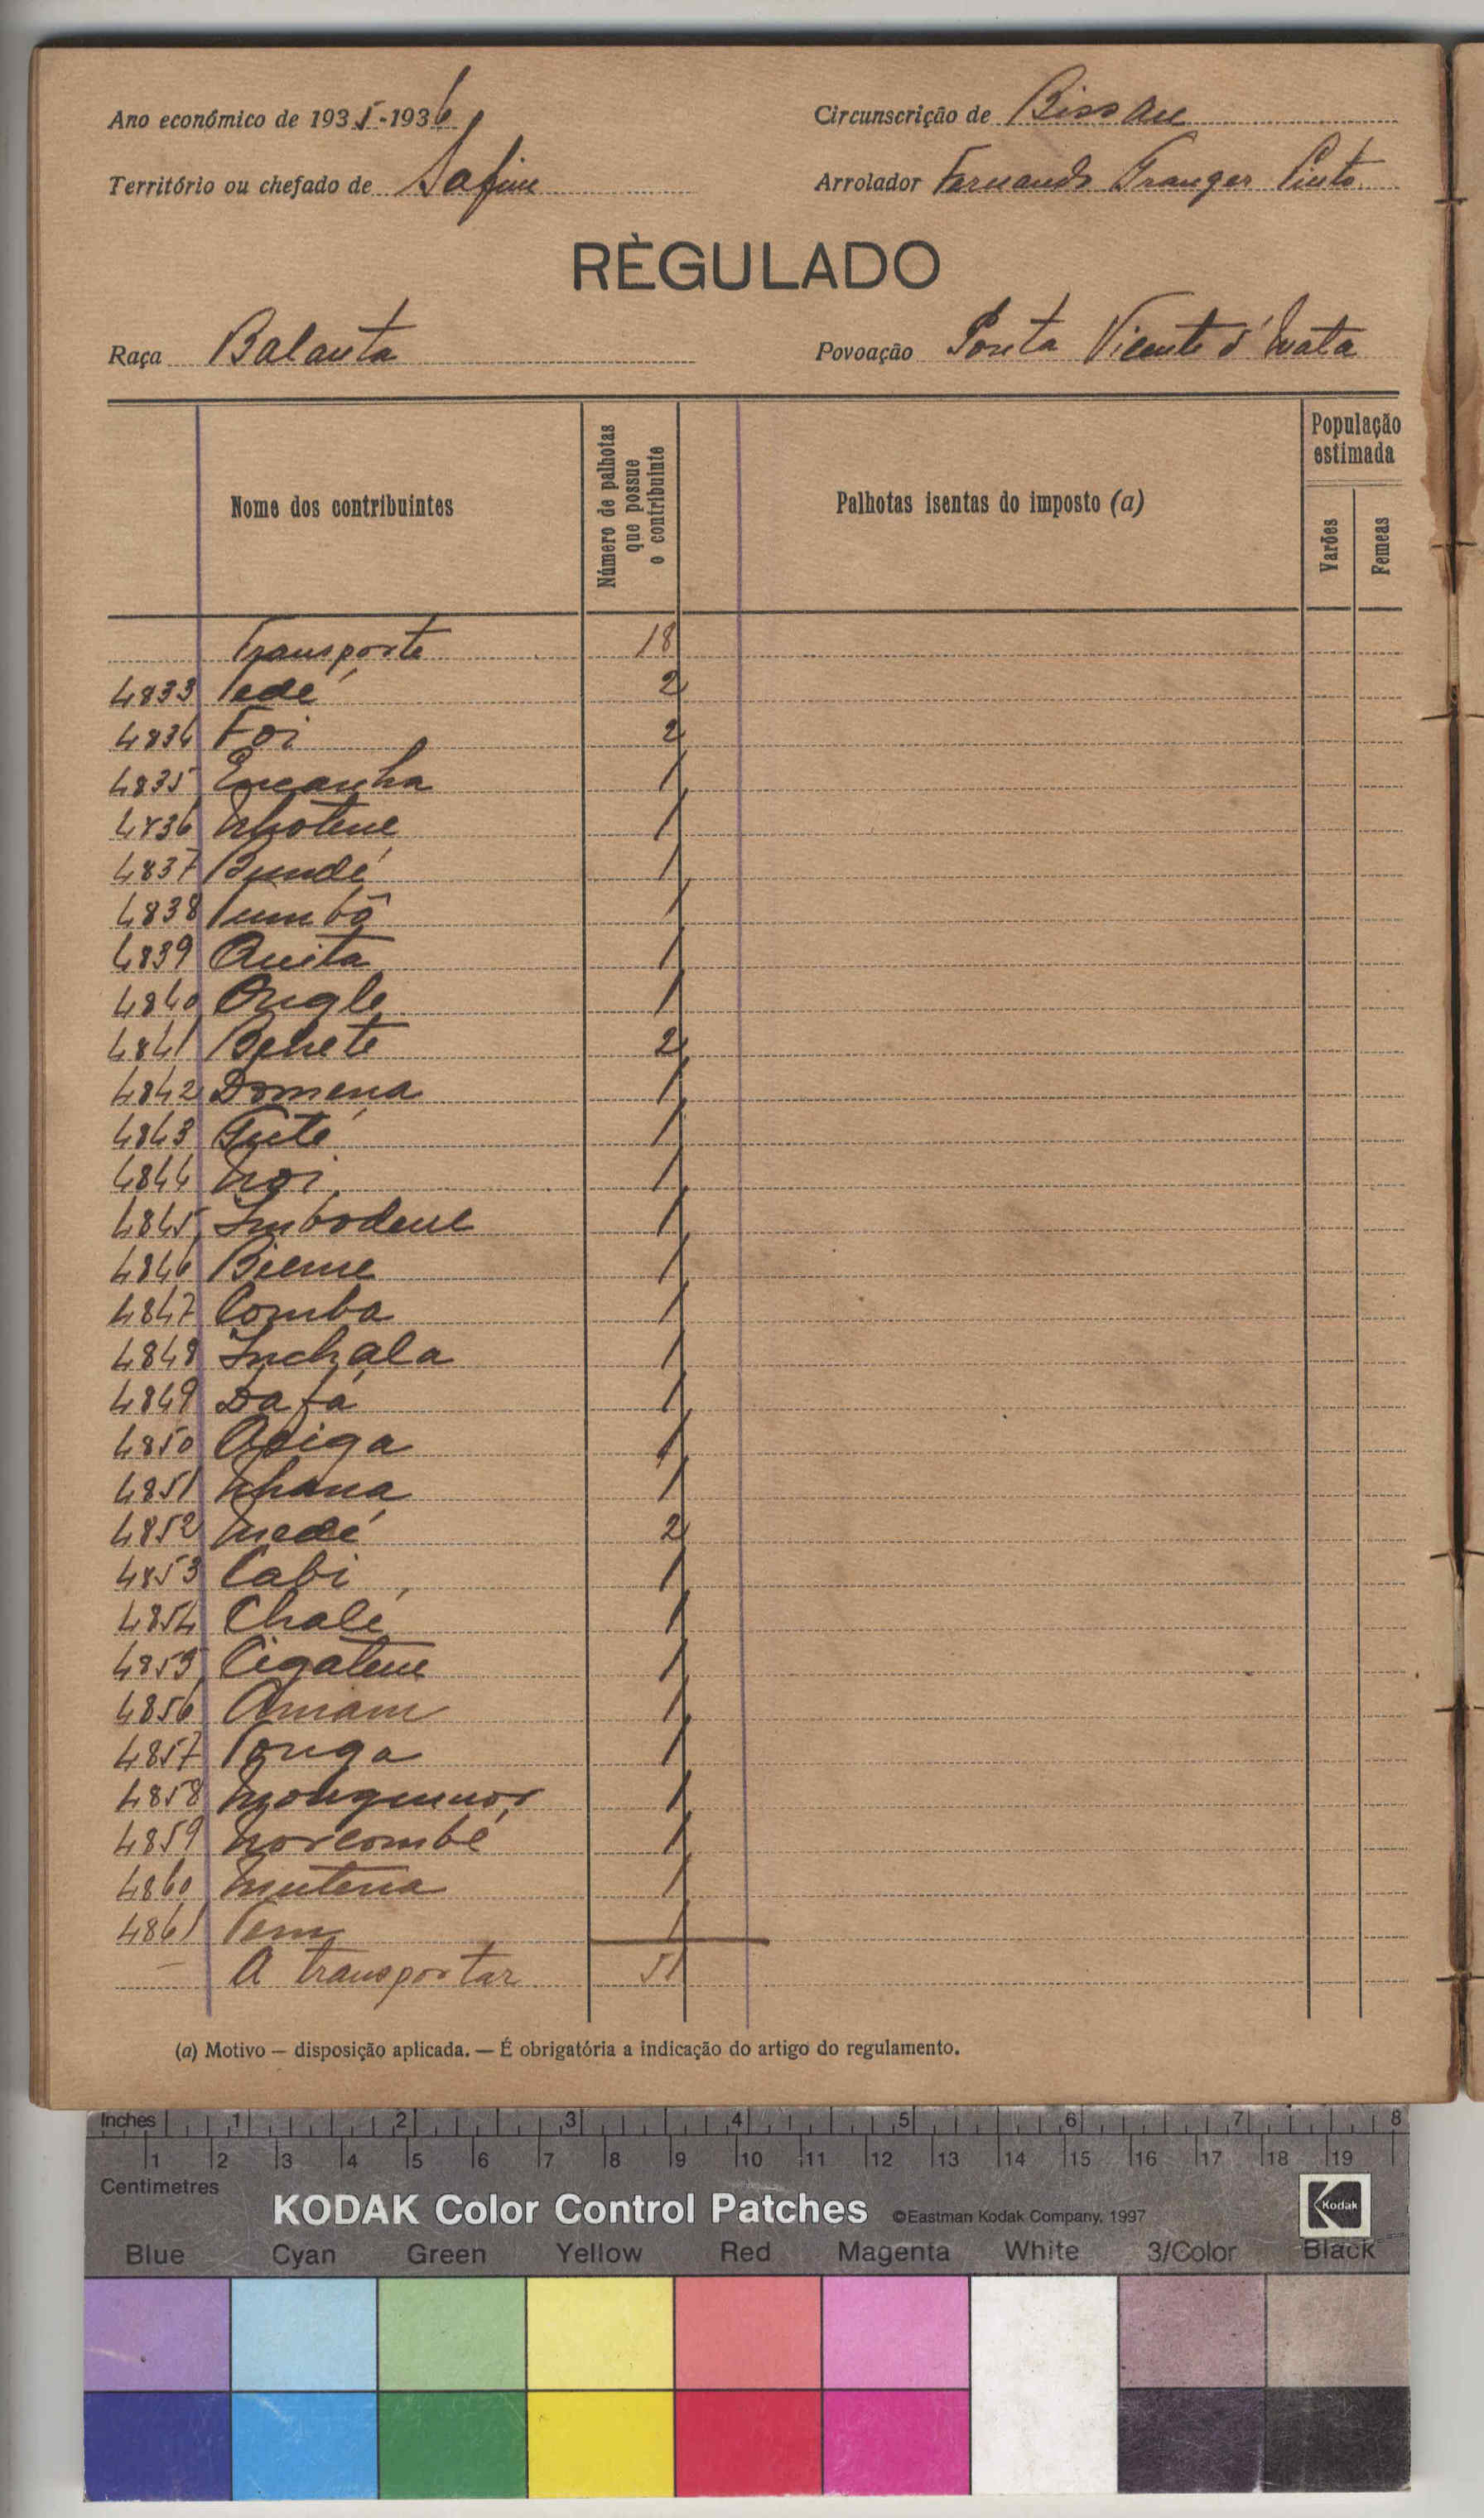 Ano económico de 1935-1936 Circunscrição de Bissau
Território ou chefado de Safim Arrolador Fernando Granger Pinto
RÈGULADO
Raça Balanta Povoação Ponta Vicente d' Mata
Nome dos contribuintes Número de palhotas que possue o contribuinte Palhotas isentas do imposto (a) População estimada Varões Femeas
Transporte 18
4833 Tedé 2
4834 Foi 2
4835 Encanha 1
4836 Nhotene 1
4837 Bundé 1
4838 Tumbô 1
4839 Anita 1
4840 Ongle 1
4841 Behete 2
4842 Domena 1
4843 Guté 1
4844 Noi 1
4845 Imbodene 1
4846 Bieme 1
4847 Comba 1
4848 Inchala 1
4849 Dafá 1
4850 Aciga 1
4851 Nhana 1
4852 Medé 2
4853 Cabi 1
4854 Chalé 1
4855 Cigatene 1
4856 Amam 1
4857 Tonga 1
4858 1
4859 Norcombé 1
4860 1
4861 Tem 1
— A transportar 51
(a) Motivo — disposição aplicada. — É obrigatória a indicação do artigo do regulamento.
Inches 1 2 3 4 5 6 7 8
1 2 3 4 5 6 7 8 9 10 11 12 13 14 15 16 17 18 19
Centimetres
KODAK Color Control Patches ©Eastman Kodak Company, 1997 Kodak
Blue Cyan Green Yellow Red Magenta White 3/Color Black